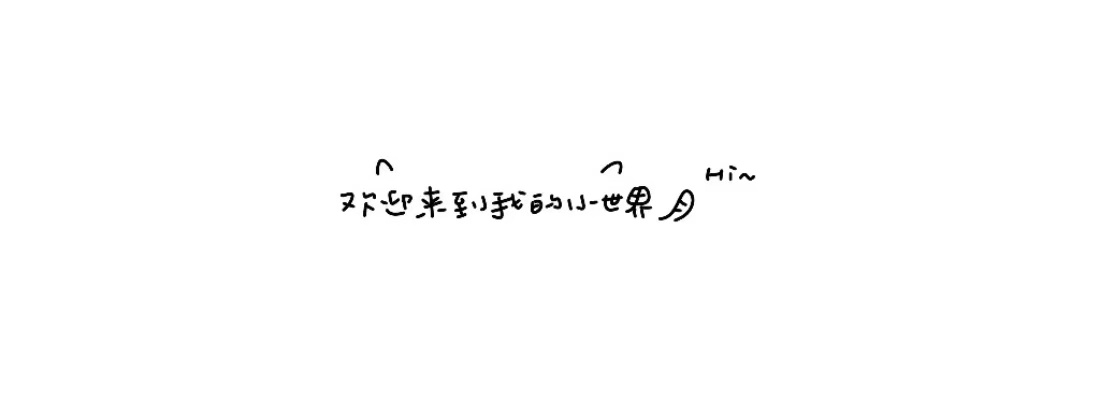 欢迎来到我的小世界 Hi~